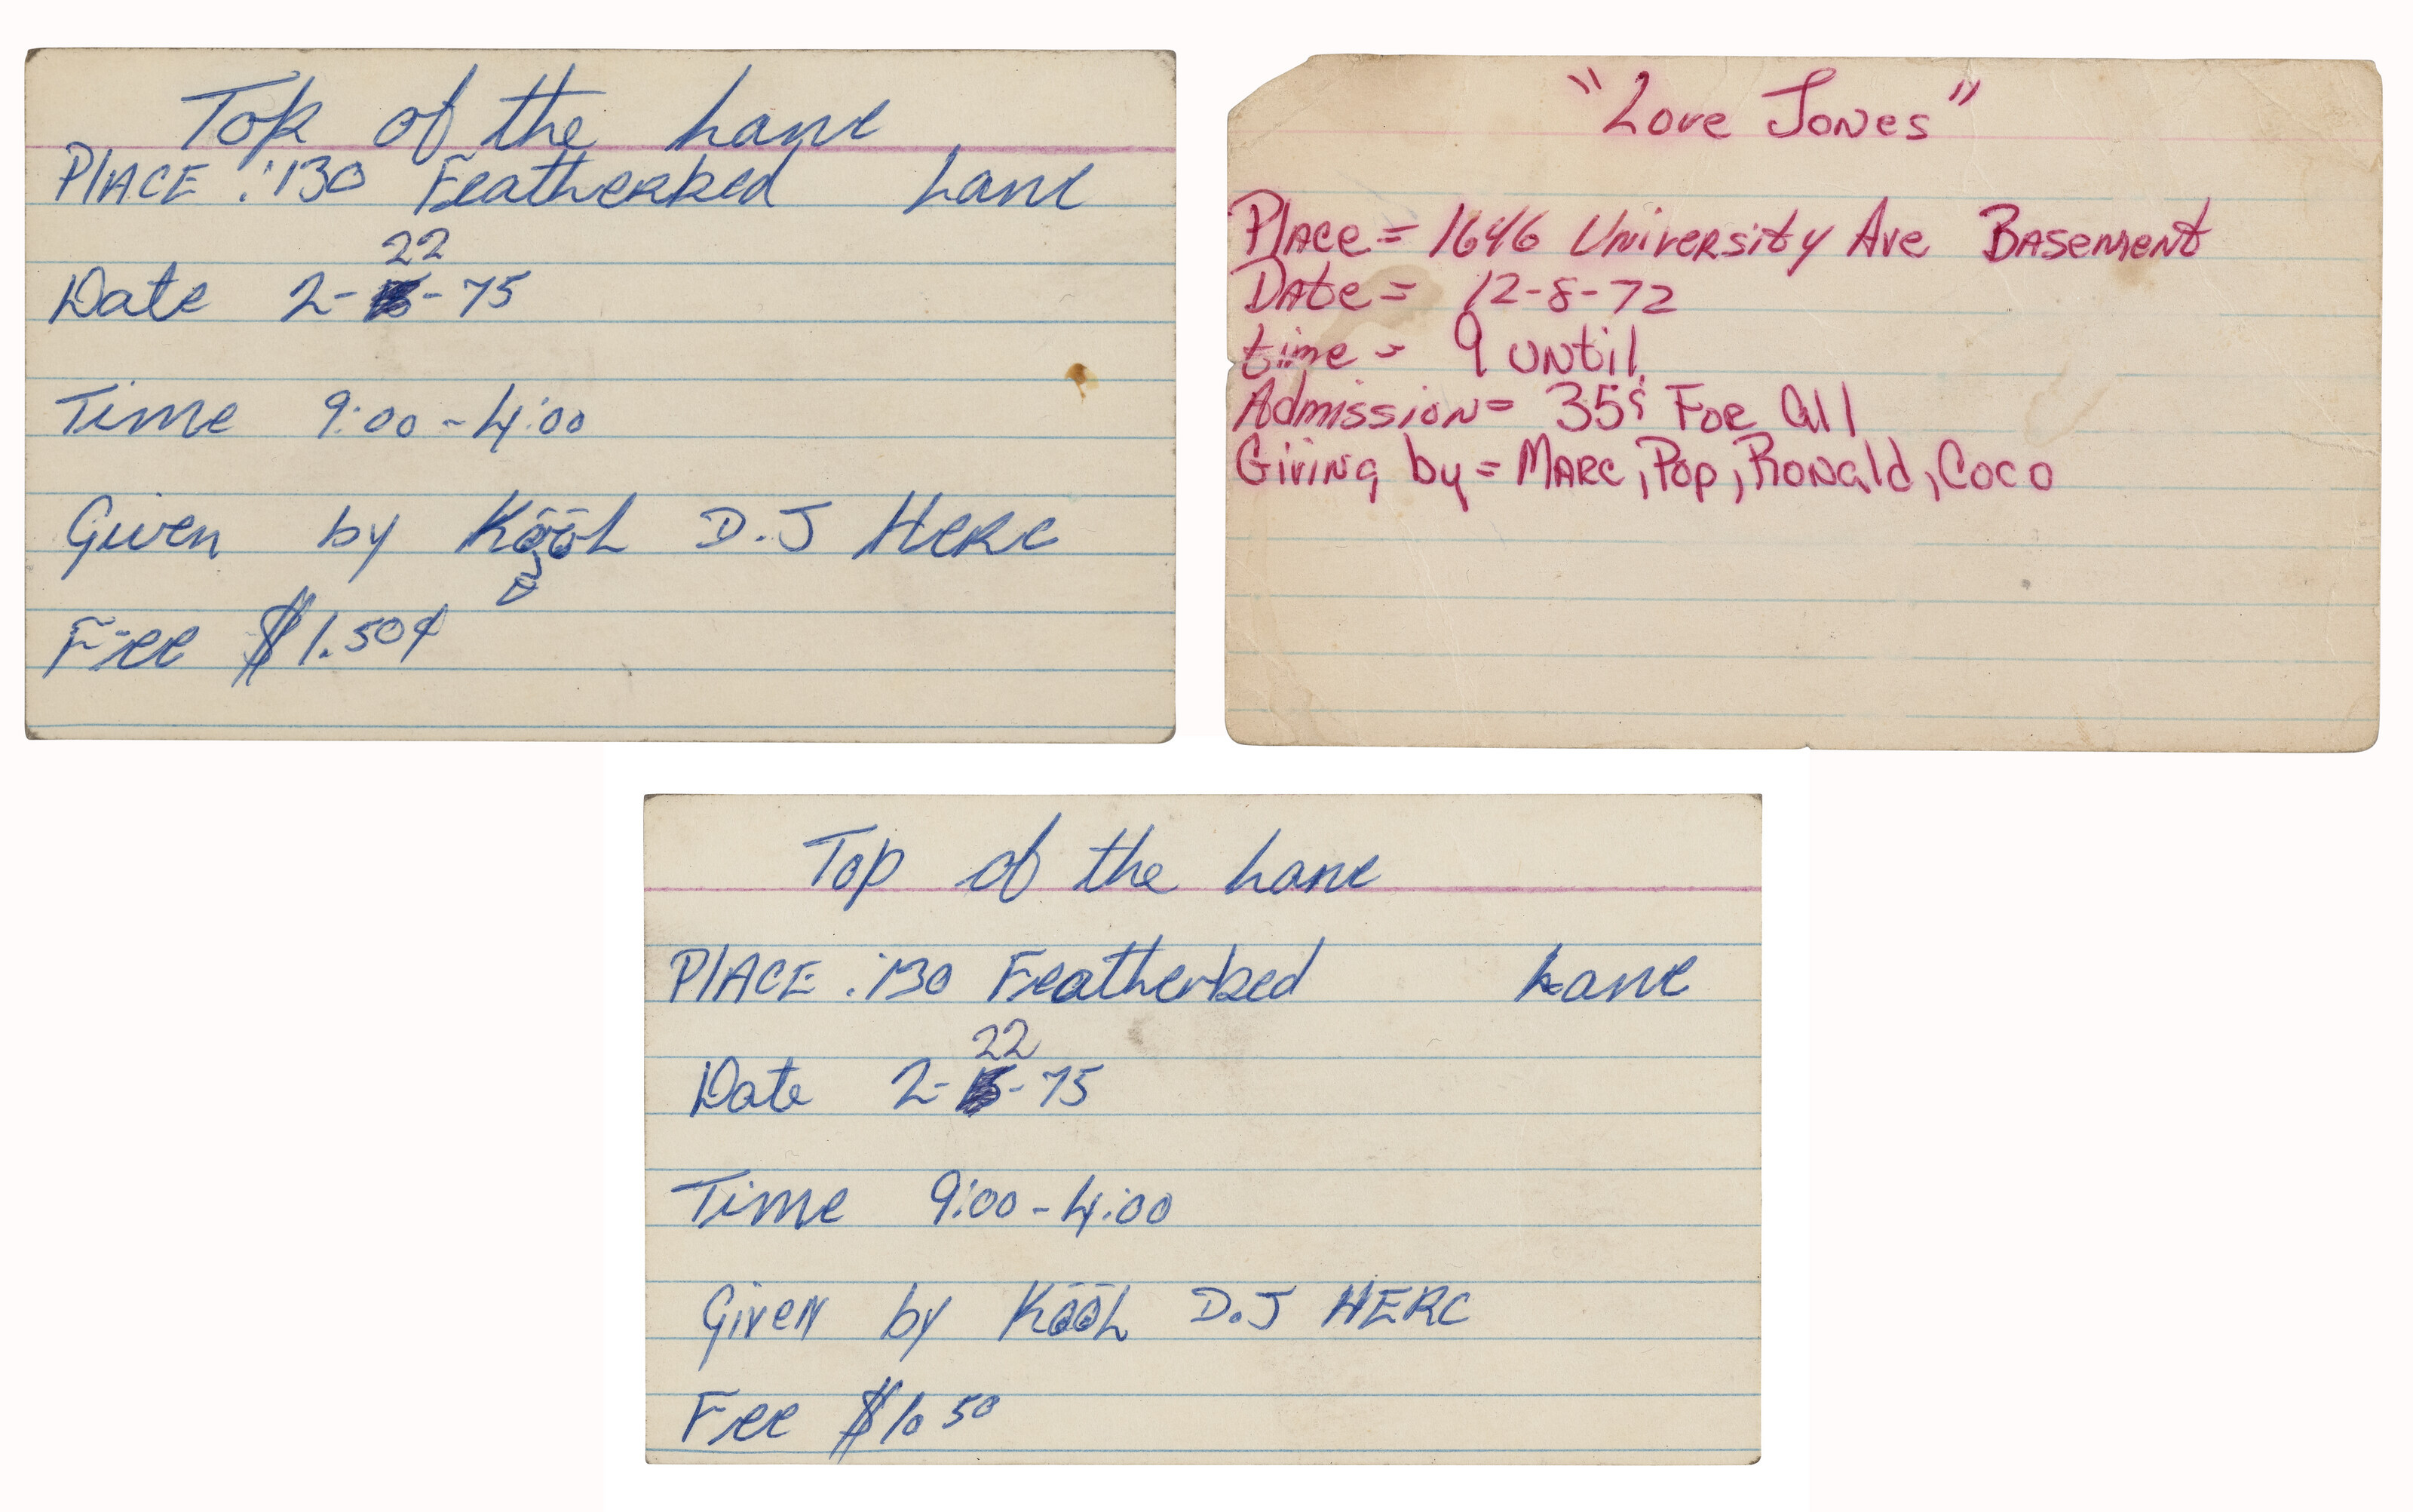 Top of the Lane
PlACE : 130 Featherbed Lane
22
Date 2-15-75
Time 9:00-4:00
Given by KööL D.J HERC
Free $1.50¢
"Love Jones"
Place = 1646 University Ave Basement
Date = 12-8-72
time = 9 until
Admission = 35¢ For All
Giving by = Marc, Pop, Ronald, Coco
Top of the Lane
PlACE : 130 Featherbed Lane
22
Date 2-15-75
Time 9:00-4:00
Given by KööL D.J HERC
Fee $1.50